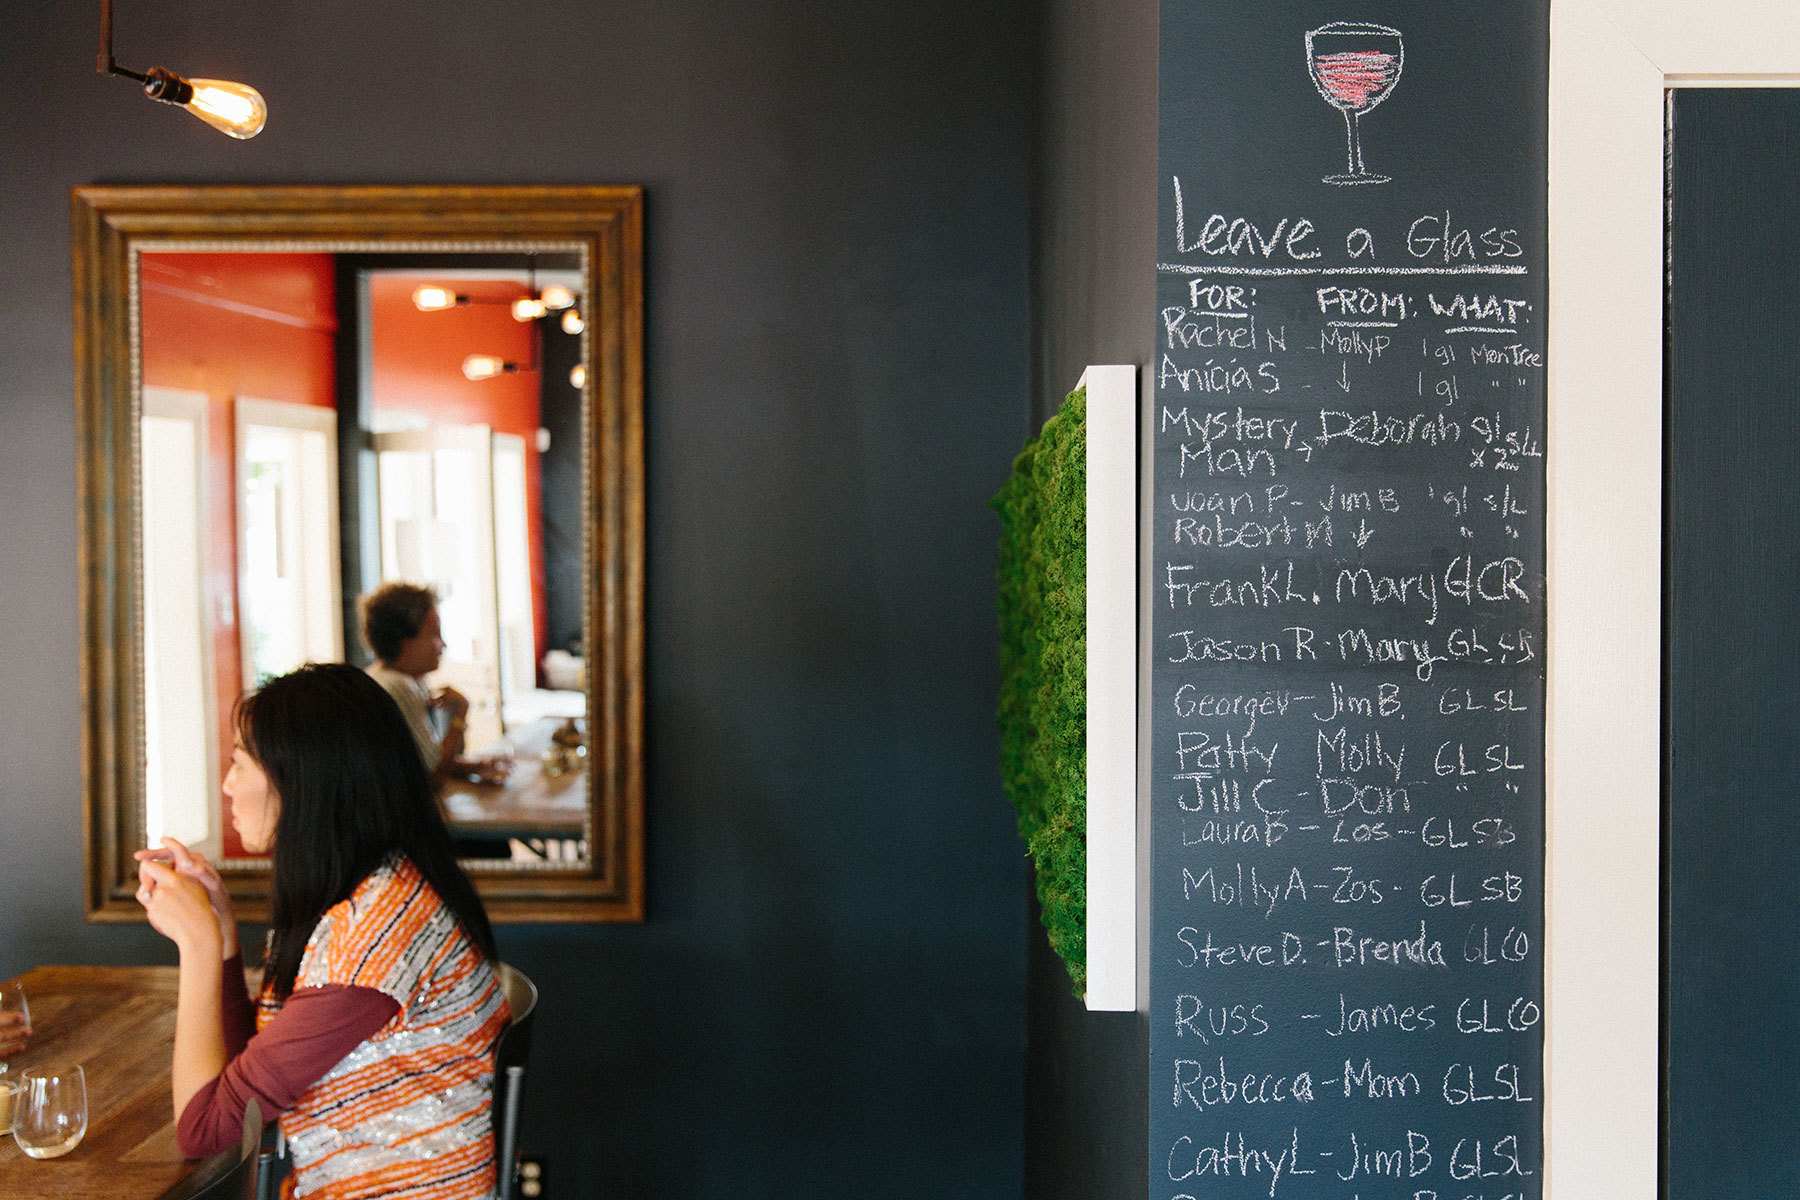 Leave a Glass
FOR: FROM: WHAT:
Rachel N - Molly P 1 gl MonTree
Anicia S - ↓ 1 gl " "
Mystery → Deborah gl S/L
Man x 2
Joan P - Jim B 1 gl S/L
Robert M ↓ " "
Frank L. Mary Gl CR
Jason R - Mary GL
George V - Jim B. GL SL
Patty Molly GL SL
Jill C - Don " "
Laura B - Zos - GL SB
Molly A - Zos - GL SB
Steve D. - Brenda GL CO
Russ - James GL CO
Rebecca - Mom GL SL
Cathy L - Jim B GL SL